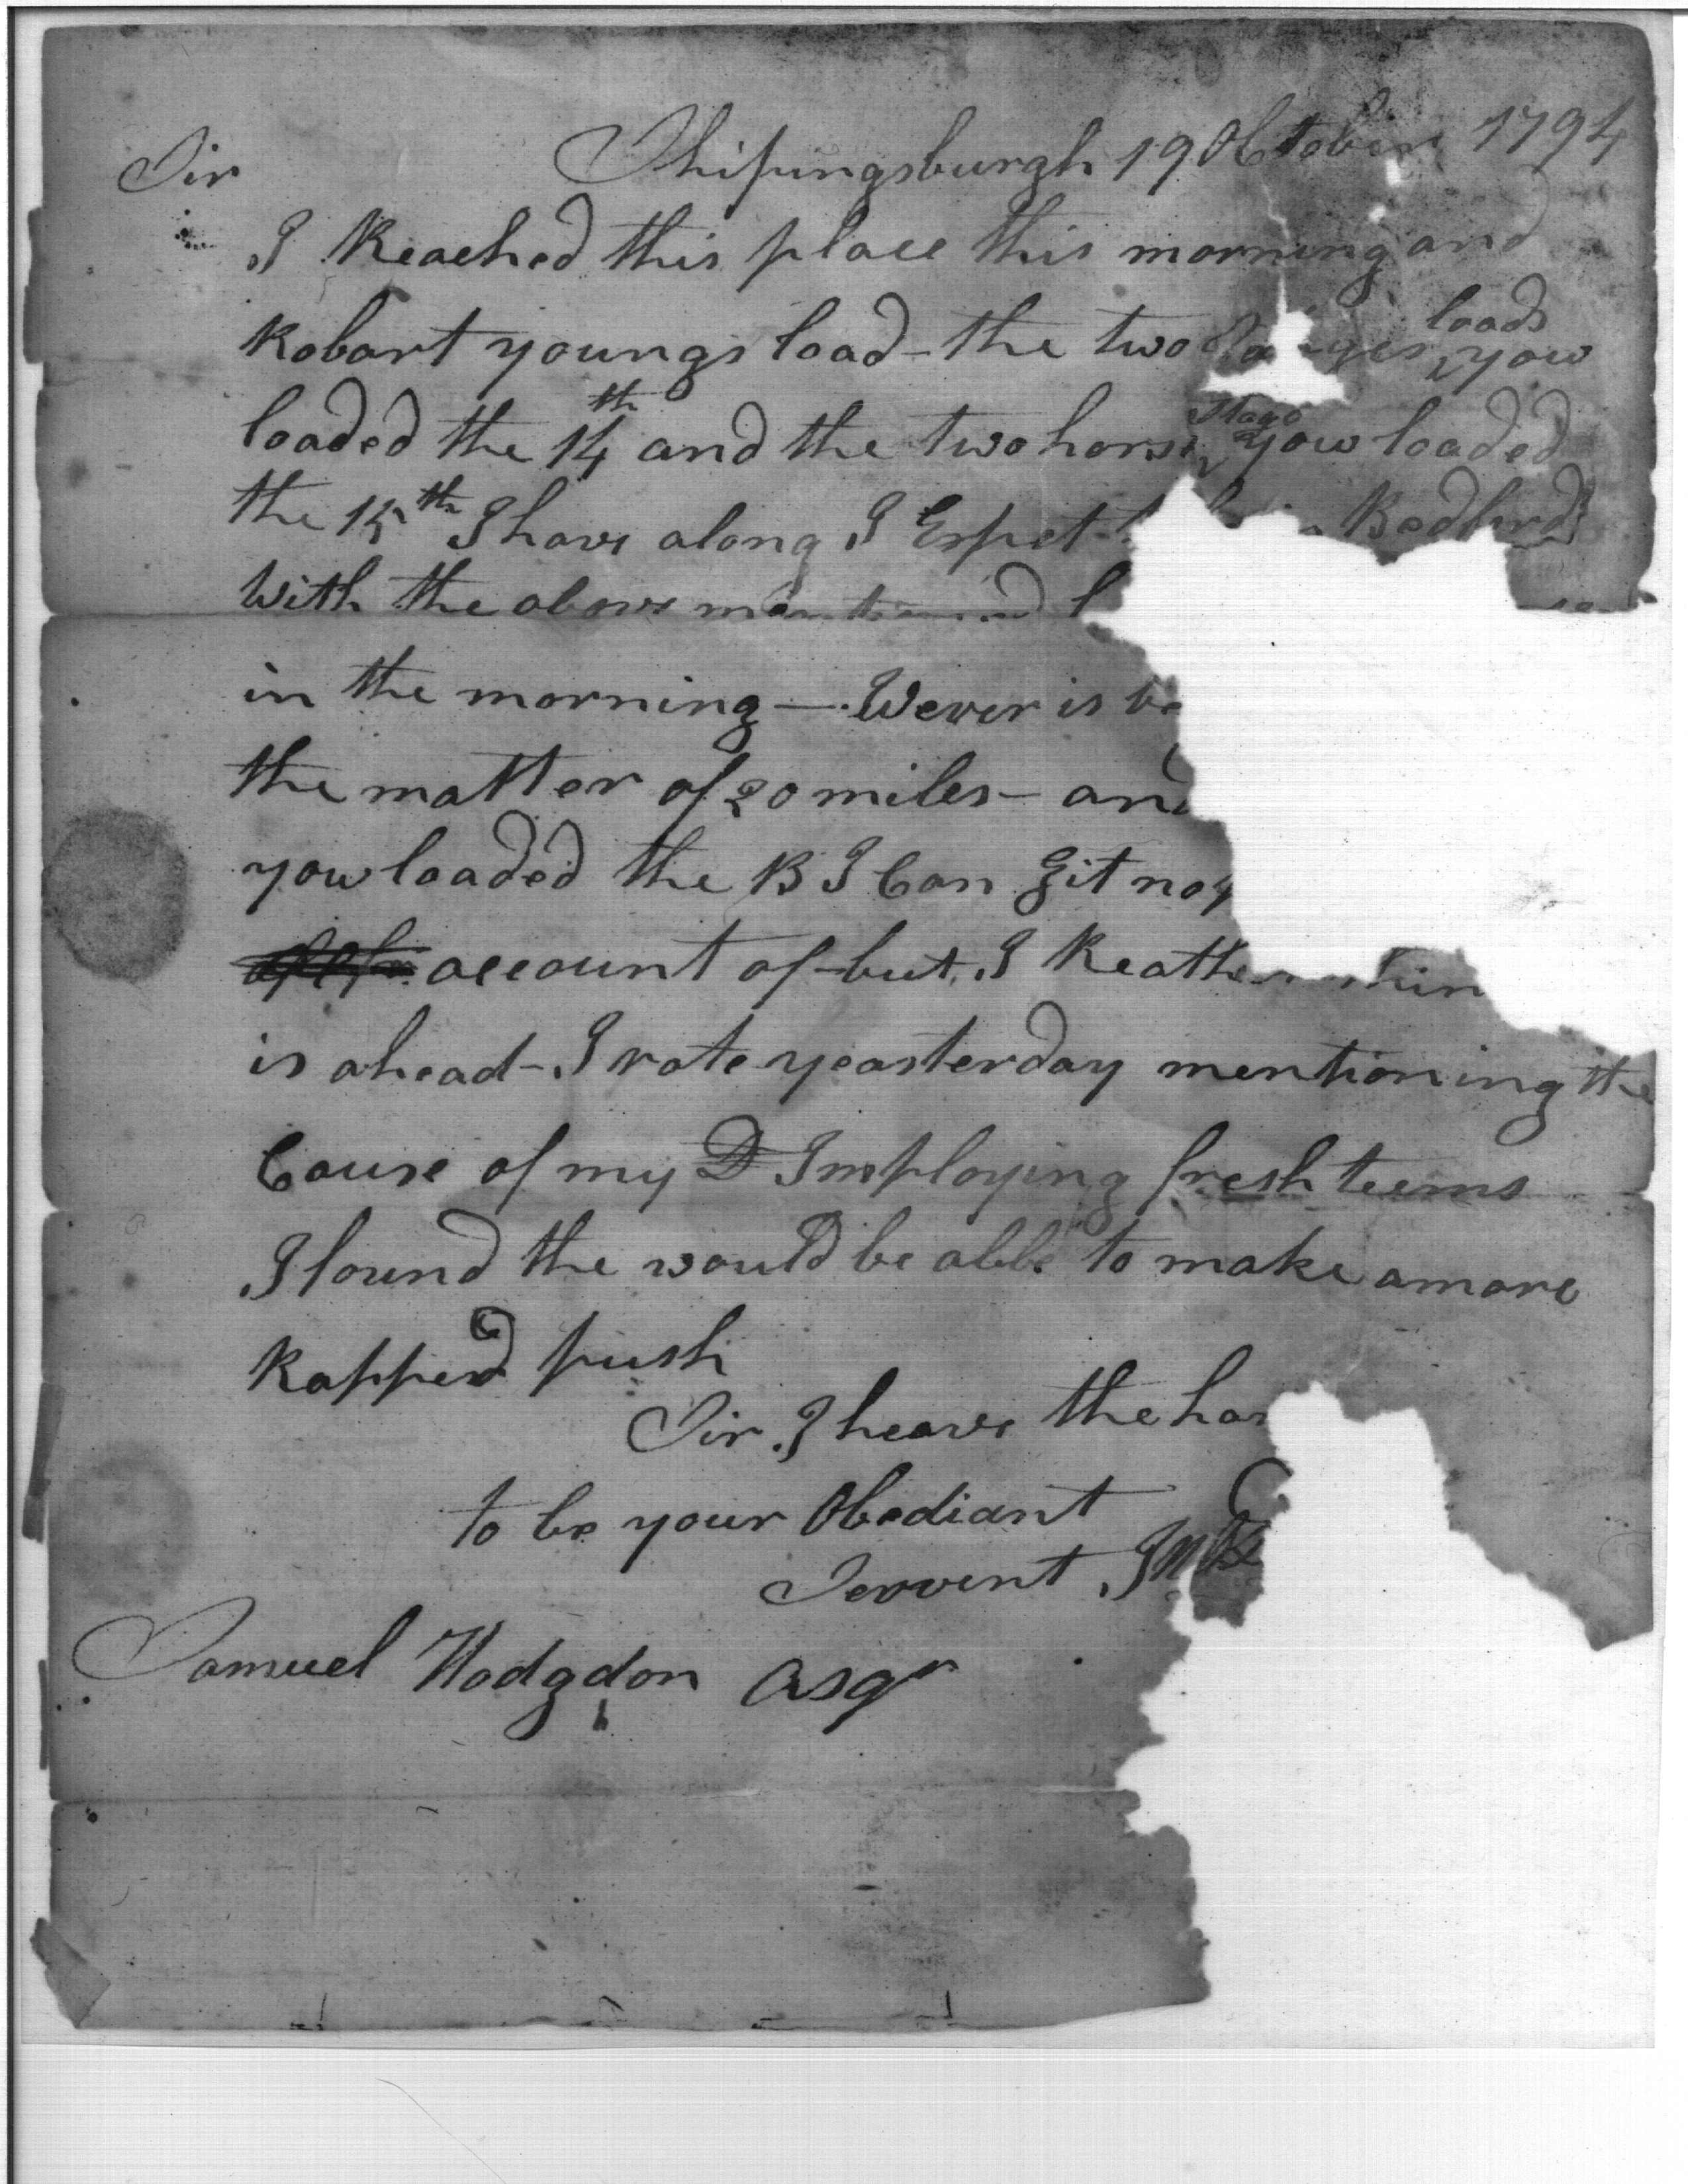 Shipingsburgh 19 October 1794
Sir
I Reached this place this morning and
Robart youngs load - the two loads you
loaded the 14th and the two horse Stage you loaded
the 15th I have along I Expet Bedford
with the above mentioned
in the morning — Wever is
the matter of 20 miles - and
you loaded the 13 I Can git no
account of - but I Reather
is ahead - I rote yeasterday mentioning the
Cause of my D Imploying fresh teems
I found the would be able to make a more
Rapped push
Sir I heave the
to be your Obediant
Servent
Samuel Hodgdon Esqr